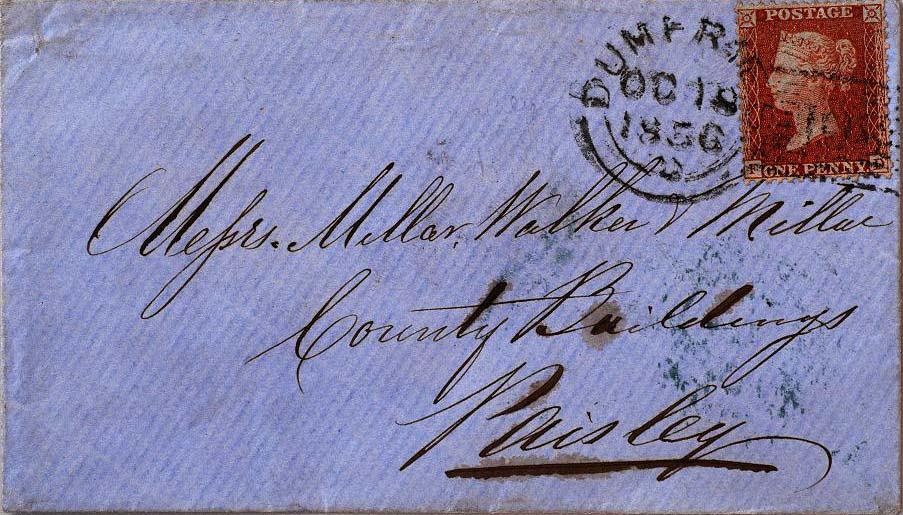 POSTAGE
ONE PENNY
DUMFRIES
OC 18
1856
Messrs. Millar, Walker & Millar
County Buildings
Paisley